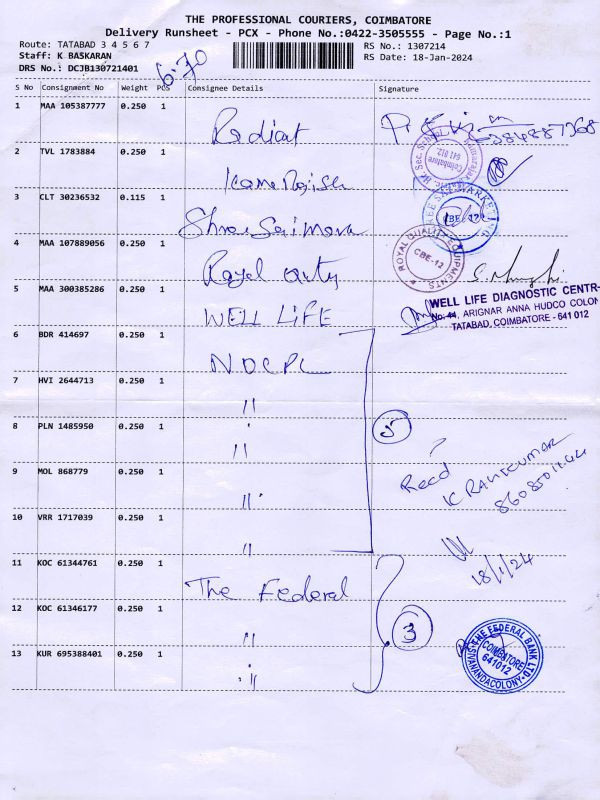 THE PROFESSIONAL COURIERS, COIMBATORE
Delivery Runsheet - PCX - Phone No.:0422-3505555 - Page No.:1
Route: TATABAD 3 4 5 6 7
RS No.: 1307214
Staff: K BASKARAN
RS Date: 18-Jan-2024
DRS No.: DCJB130721401
6.30
S No Consignment No Weight PCS Consignee Details Signature
1 MAA 105387777 0.250 1 Rediant
2 TVL 1783884 0.250 1
3 CLT 30236532 0.115 1 Shree Sai Mara
CBE-12
4 MAA 107889056 0.250 1 Royal
ROYAL QUALITY EQUIPMENTS
CBE-12
5 MAA 300385286 0.250 1 WELL LIFE
WELL LIFE DIAGNOSTIC CENTR
No. 44, ARIGNAR ANNA HUDCO COLON
TATABAD, COIMBATORE - 641 012
6 BDR 414697 0.250 1 NDCPL
7 HVI 2644713 0.250 1 "
8 PLN 1485950 0.250 1 "
5
9 MOL 868779 0.250 1 "
Recd
K RAVIKUMAR
10 VRR 1717039 0.250 1 "
18/1/24
11 KOC 61344761 0.250 1 The Federal
12 KOC 61346177 0.250 1 "
3
13 KUR 695388401 0.250 1 "
THE FEDERAL BANK LTD.
COIMBATORE
641012